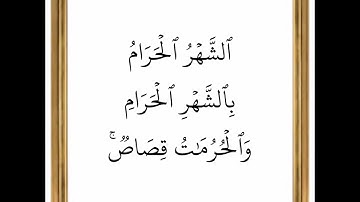 ٱلشَّهۡرُ ٱلۡحَرَامُ
بِٱلشَّهۡرِ ٱلۡحَرَامِ
وَٱلۡحُرُمَٰتُ قِصَاصٞۚ